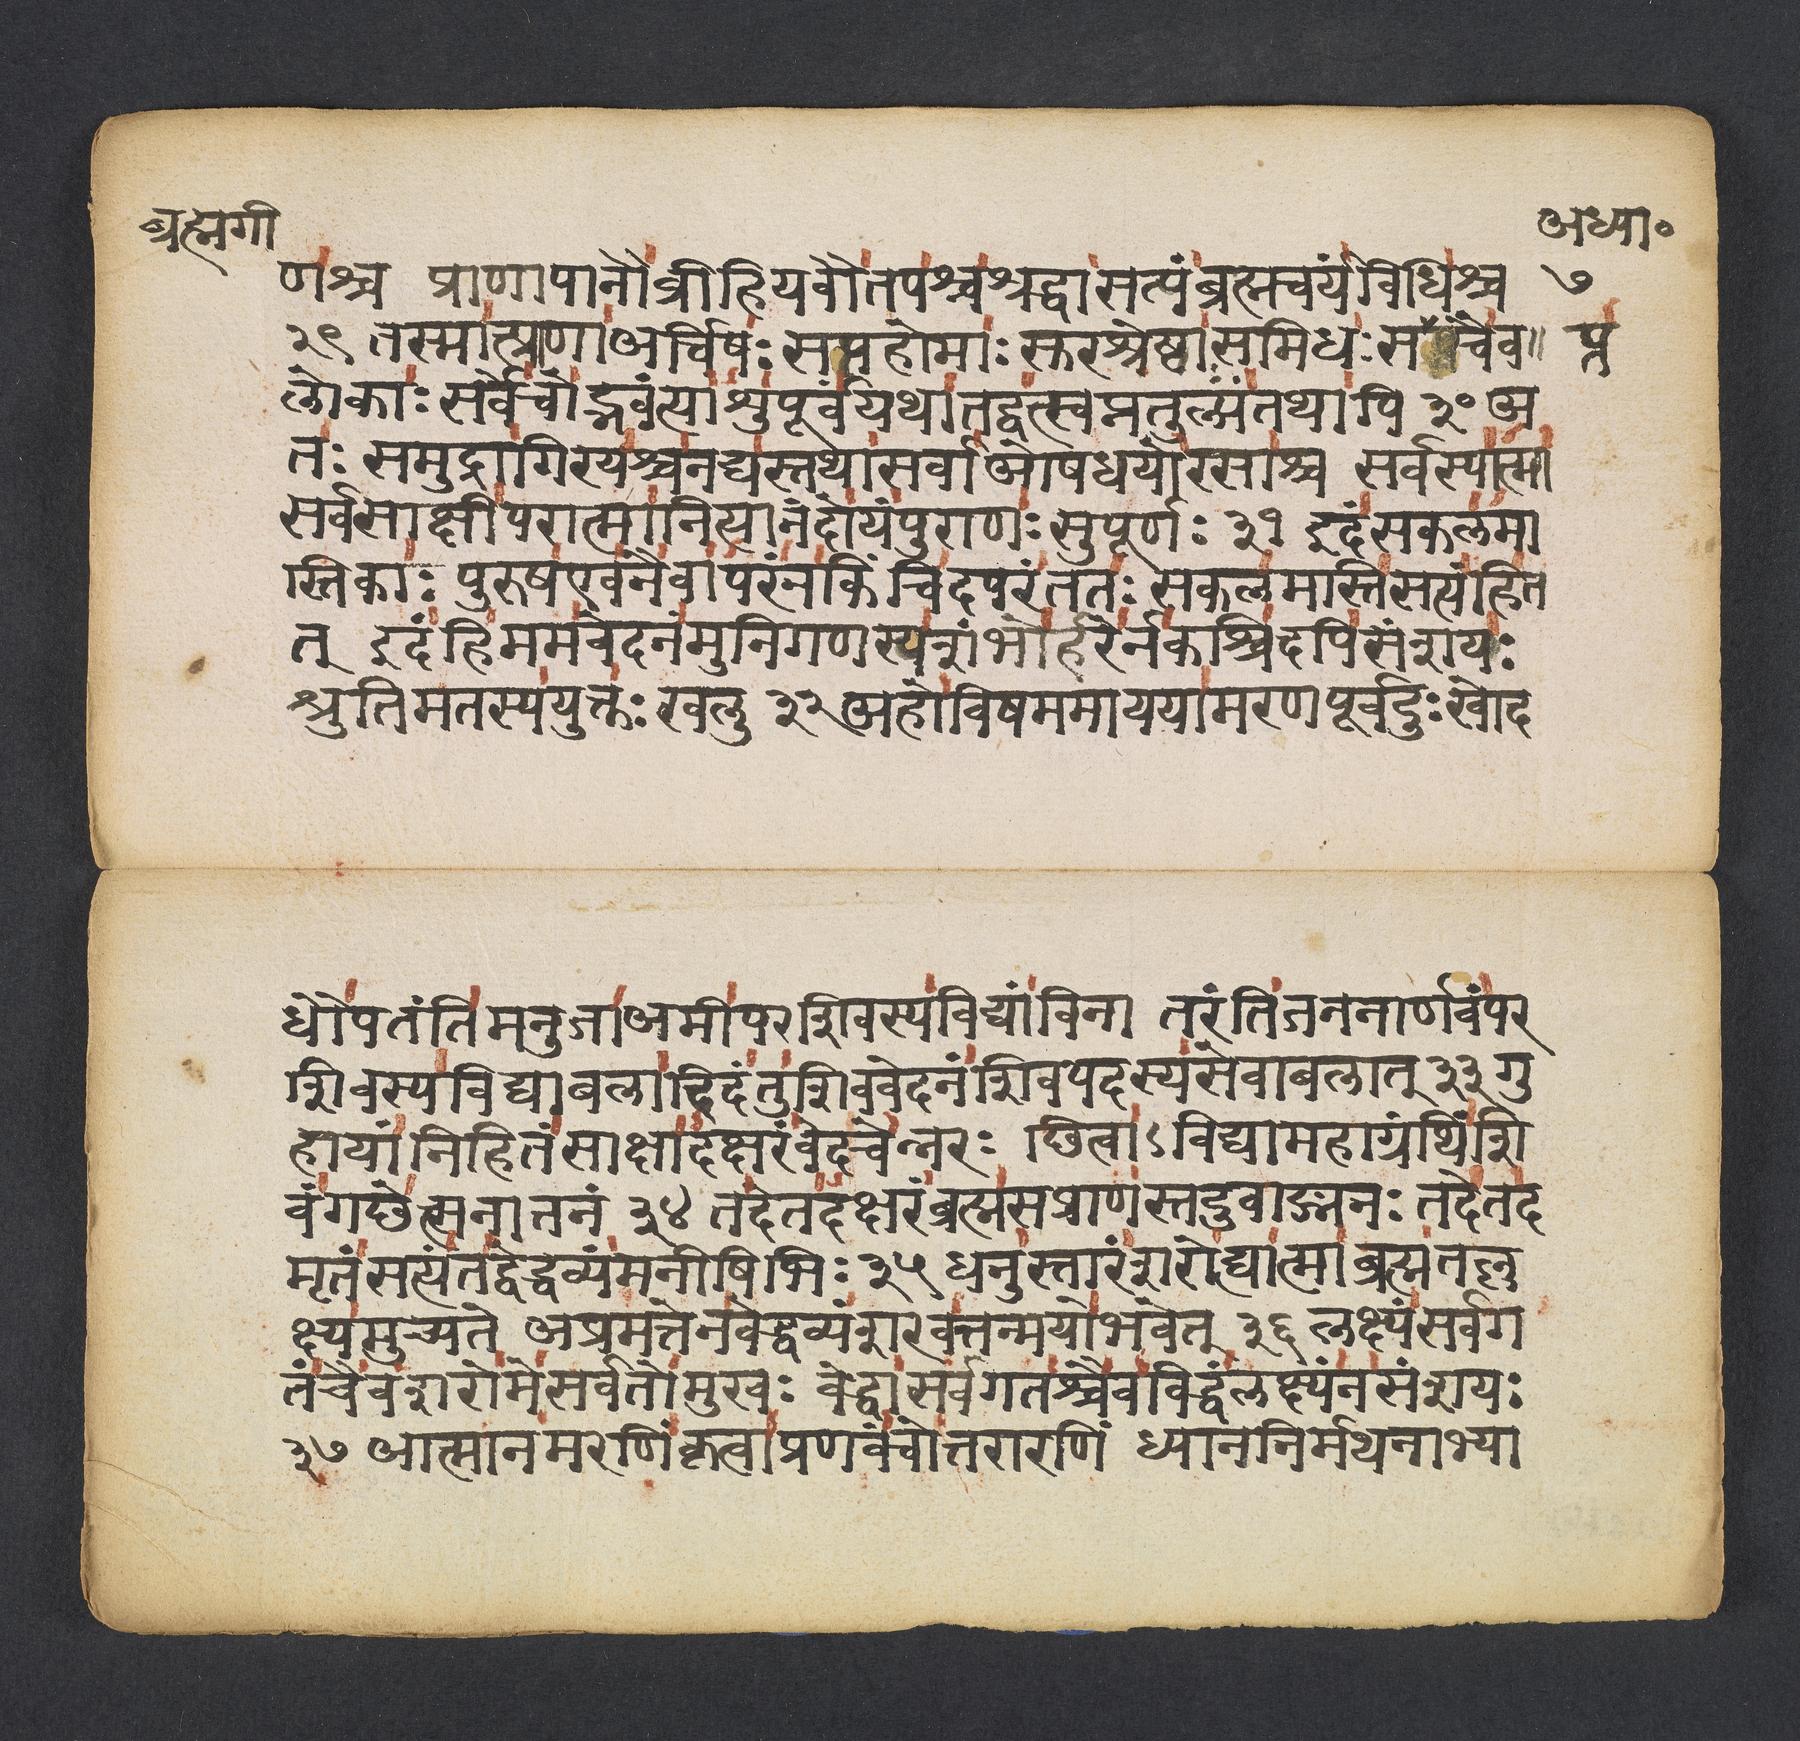 ब्रह्मगी
अध्या०
७
णश्च प्राणापानौव्रीहियवौतपश्चश्रद्धासत्यंब्रह्मचर्यंविधिश्च
२९ तस्मात्प्राणाअर्चिषः सप्तहोमाः स्तरश्रेष्ठासमिधः सप्तचैव॥
प्त
लोकाः सर्वेचोद्भवंत्याशुपूर्वंयथातद्वत्स्वप्नतुल्यंतथापि ३० अ
तः समुद्रागिरयश्चनद्यस्तथासर्वाओषधयोरसाश्च सर्वस्यात्मा
सर्वसाक्षीपरात्मानित्यानंदोयंपुराणः सुपूर्णः ३१ इदंसकलमा
स्तिकाः पुरुषएवनैवापरंनकिंचिदपरंततः सकलमास्तिसत्यंहित
त् इदंहिममवेदनंमुनिगणस्यशंभोर्हरेर्नकश्चिदपिसंशयः
श्रुतिमतस्ययुक्तः खलु ३२ अहोविषममाययामरणपूर्वदुःखोद
धौपतंतिमनुजाअमीपरशिवस्यविद्यांविना तरंतिजननार्णवंपर
शिवस्यविद्याबलाद्दिदंतुशिववेदनंशिवपदस्यसेवाबलात् ३३ गु
हायांनिहितंसाक्षादक्षरंवेदचेन्नरः छित्वाऽविद्यामहाग्रंथिंशि
वंगछेत्सनातनं ३४ तदेतदक्षरंब्रह्मसप्राणस्तदुवाङ्मनः तदेतद
मृतंसत्यंतद्वेद्धव्यंमनीषिभिः ३५ धनुस्तारंशरोह्यात्माब्रह्मतल्ल
क्ष्यमुच्यते अप्रमत्तेनवेद्धव्यंशरवत्तन्मयोभवेत् ३६ लक्ष्यंसर्वग
तंचैवशरोमेसर्वतोमुखः वेद्धासर्वगतश्चैवविद्धंलक्ष्यंनसंशयः
३७ आत्मानमरणिंकृत्वाप्रणवंचोत्तरारणिं ध्याननिर्मथनाभ्या